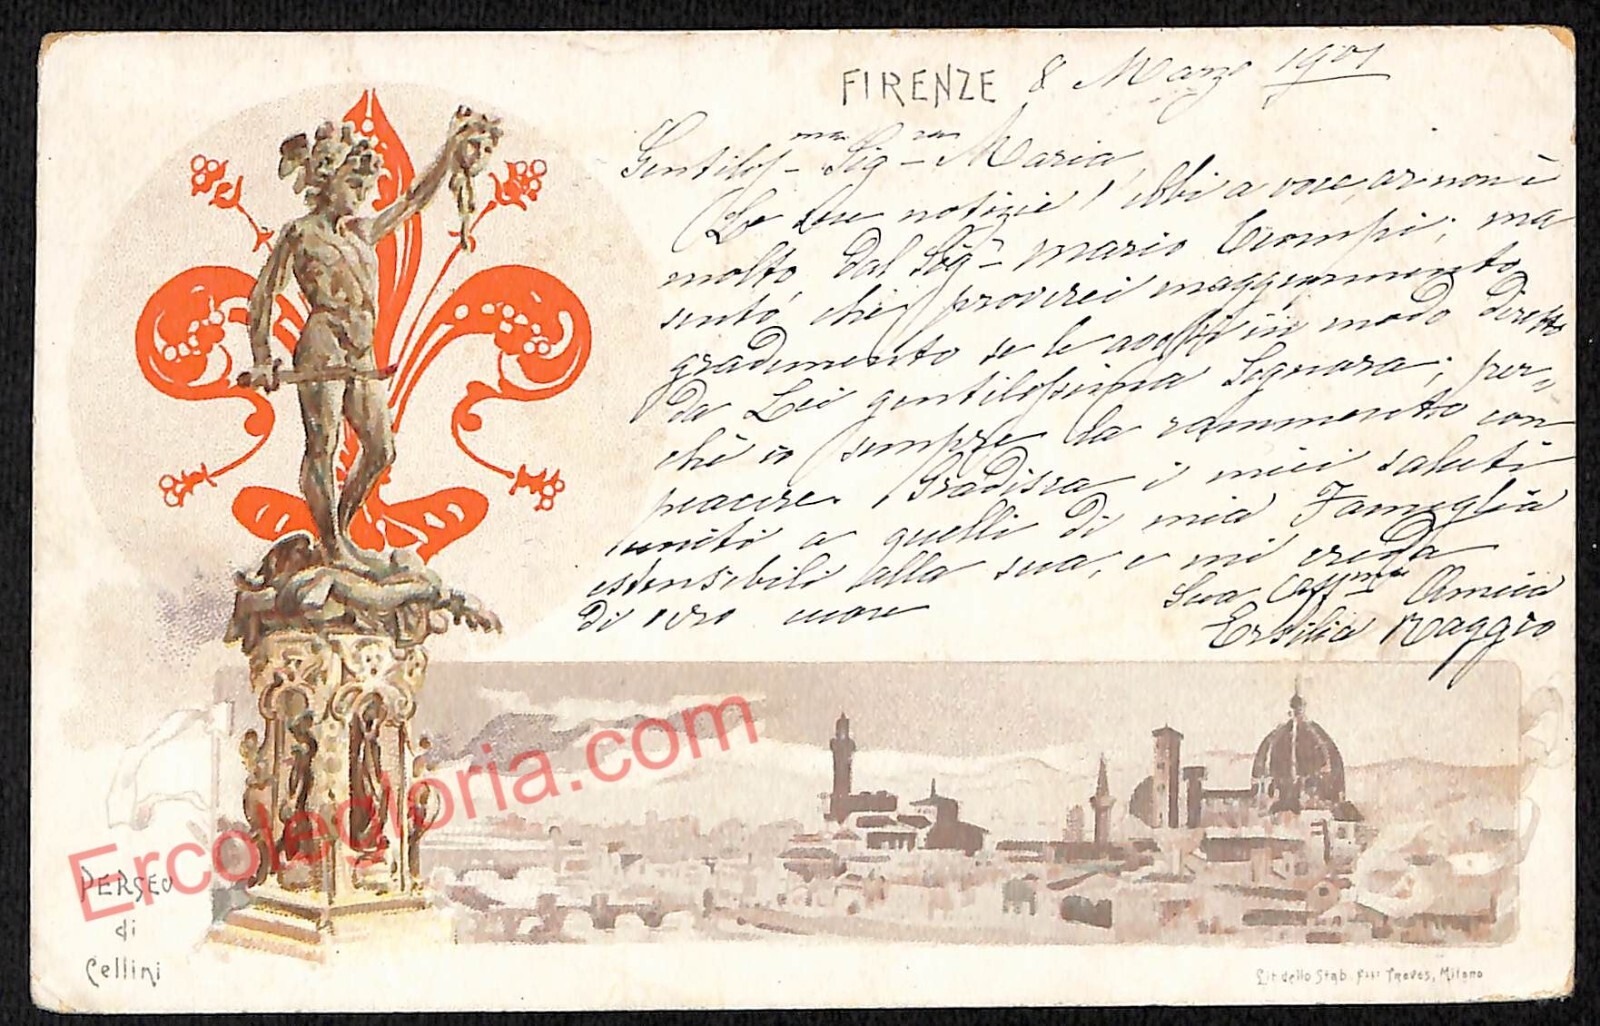 FIRENZE 8 Marzo 1901
Gentiloſma Sigra Maria,
Le sue notizie l'ebbi a voce, or non è
molto, dal Sigr Mario Ciompi; ma
senta, che proverei maggiormente
gradimento se le avessi in modo diretto
da Lei gentiloſsima Signora; per-
chè io sempre la rammento con
piacere. Gradisca i miei saluti
uniti a quelli di mia Famiglia
estensibili alla sua, e mi creda
di vero cuore
Sua Affma Amica
Ersilia Raggio
Ercolegloria.com
PERSEO
di
Cellini
Lit. dello Stab. Flli Treves, Milano